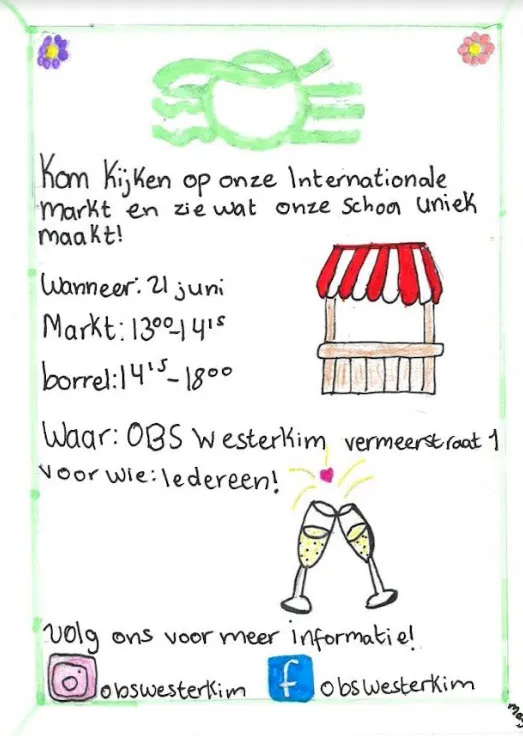 Kom Kijken op onze Internationale
Markt en zie wat onze school uniek
maakt!
Wanneer: 21 juni
Markt: 13⁰⁰-14¹⁵
borrel: 14¹⁵-18⁰⁰
Waar: OBS Westerkim vermeerstraat 1
voor wie: Iedereen!
Volg ons voor meer informatie!
obswesterkim
f obswesterkim